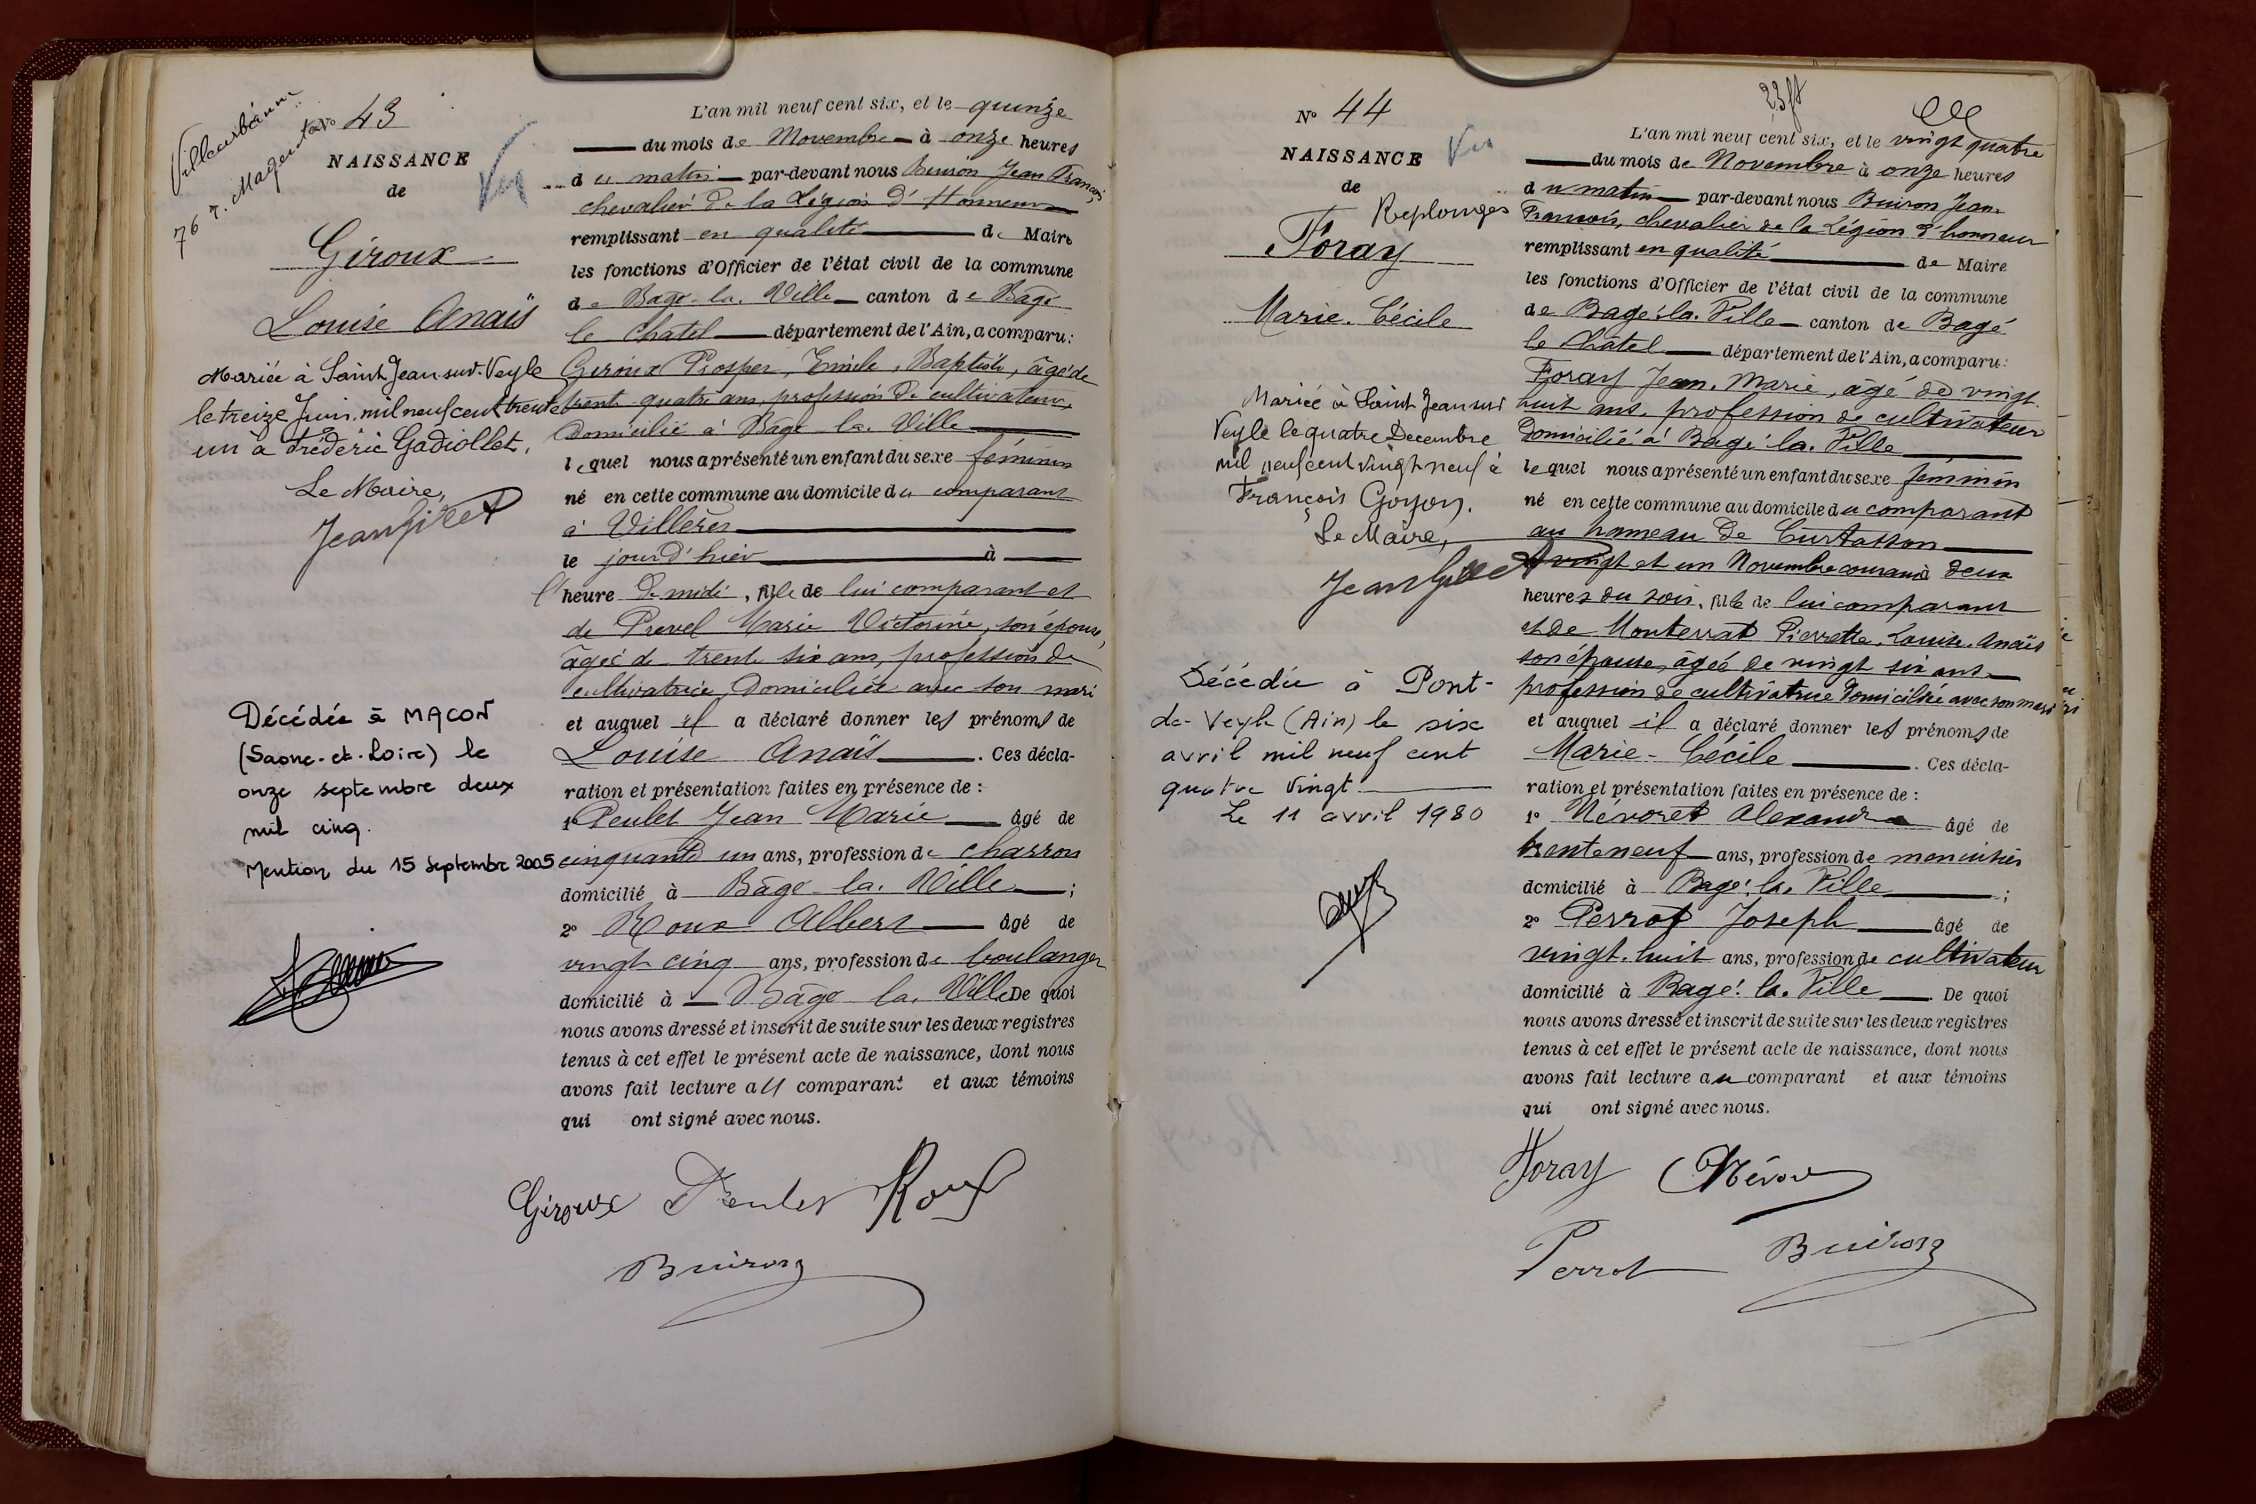 Villeurbanne
76 r. Magenta
No 43
NAISSANCE
de
Vu
Giroux
Louise Anaïs
Mariée à Saint Jean sur Veyle
le treize Juin mil neuf cent trente
un à Frédéric Gadiollet.
Le Maire,
Décédée à MACON
(Saone-et-Loire) le
onze septembre deux
mil cinq.
Mention du 15 Septembre 2005
L'an mil neuf cent six, et le quinze
du mois de Novembre à onze heures
du matin par-devant nous Buiron Jean François
chevalier de la Légion d'Honneur
remplissant en qualité de Maire
les fonctions d'Officier de l'état civil de la commune
de Bagé-la-Ville canton de Bagé
le Chatel département de l'Ain, a comparu:
Giroux Prosper, Emile, Baptiste, âgé de
trente quatre ans, profession de cultivateur
domicilié à Bâgé la Ville
lequel nous a présenté un enfant du sexe féminin
né en cette commune au domicile du comparant
à Villères
le jour d'hier à
l'heure de midi, fille de lui comparant et
de Prevel Marie Victorine, son épouse,
âgée de trente six ans, profession de
cultivatrice, domiciliée avec son mari
et auquel il a déclaré donner les prénoms de
Louise Anaïs. Ces décla-
ration et présentation faites en présence de :
1° Peulet Jean Marie âgé de
cinquante un ans, profession de charron
domicilié à Bâgé la Ville ;
2° Roux Albert âgé de
vingt cinq ans, profession de boulanger
domicilié à Bâgé la Ville De quoi
nous avons dressé et inscrit de suite sur les deux registres
tenus à cet effet le présent acte de naissance, dont nous
avons fait lecture au comparant et aux témoins
qui ont signé avec nous.
Giroux Peulet Roux
Buiron
N° 44
NAISSANCE
de
Vu
Replonges
Foray
Marie-Cécile
Mariée à Saint Jean sur
Veyle le quatre Decembre
mil neuf cent vingt neuf à
François Goyon.
Le Maire,
Décédée à Pont-
de-Veyle (Ain) le six
avril mil neuf cent
quatre vingt
Le 11 avril 1980
L'an mil neuf cent six, et le vingt quatre
du mois de Novembre à onze heures
du matin par-devant nous Buiron Jean-
François, chevalier de la Légion d'honneur
remplissant en qualité de Maire
les fonctions d'Officier de l'état civil de la commune
de Bagé-la-Ville canton de Bagé
le Châtel département de l'Ain, a comparu:
Foray Jean-Marie, âgé de vingt-
huit ans, profession de cultivateur
domicilié à Bagé-la-Ville
lequel nous a présenté un enfant du sexe féminin
né en cette commune au domicile du comparant
au hameau de Curtasson
le vingt et un Novembre courant à deux
heures du soir, fille de lui comparant
et de Monterrat Pierrette, Louise, Anaïs
son épouse, âgée de vingt six ans
profession de cultivatrice domiciliée avec son mari
et auquel il a déclaré donner les prénoms de
Marie-Cécile. Ces décla-
ration et présentation faites en présence de :
1° Névoret Alexandre âgé de
trente neuf ans, profession de menuisier
domicilié à Bagé-la-Ville ;
2° Perrot Joseph âgé de
vingt-huit ans, profession de cultivateur
domicilié à Bagé-la-Ville. De quoi
nous avons dressé et inscrit de suite sur les deux registres
tenus à cet effet le présent acte de naissance, dont nous
avons fait lecture au comparant et aux témoins
qui ont signé avec nous.
Foray
Perrot Buiron